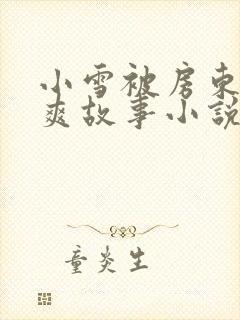 小雪被房东
爽故事小説
童炎生